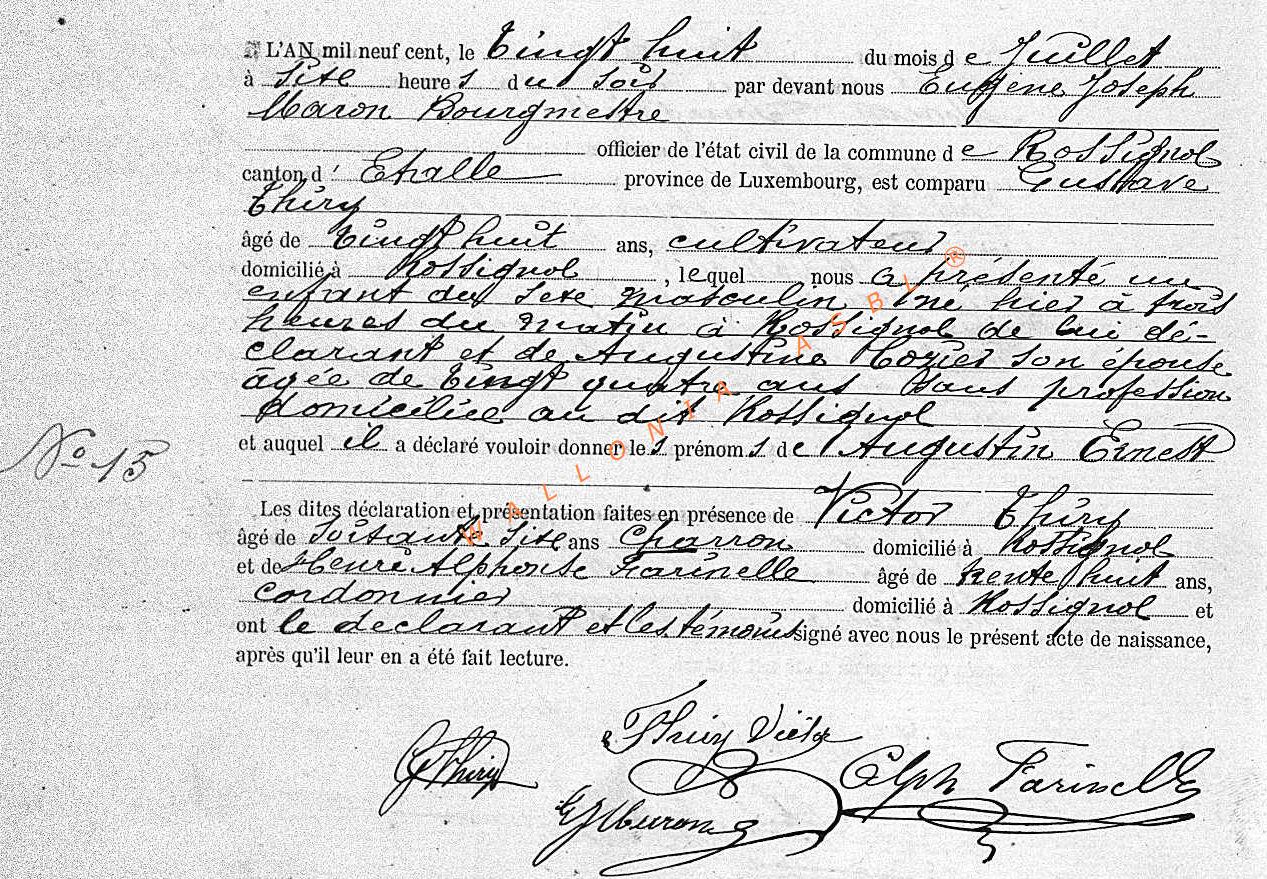 L'AN mil neuf cent, le Vingt huit du mois de Juillet
à six heures du soir par devant nous Eugène Joseph
Maron Bourgmestre
officier de l'état civil de la commune de Rossignol
canton d'Etalle province de Luxembourg, est comparu Gustave
Thiry
âgé de Vingt huit ans, cultivateur
domicilié à Rossignol, lequel nous a présenté un
enfant du sexe masculin, né hier à trois
heures du matin à Rossignol de lui dé-
clarant et de Augustine Cozier son épouse
âgée de Vingt quatre ans sans profession
domiciliée au dit Rossignol
et auquel il a déclaré vouloir donner les prénoms de Augustin Ernest
N° 15
Les dites déclaration et présentation faites en présence de Victor Thiry
âgé de soixante six ans Charron domicilié à Rossignol
et de Henri Alphonse Farinelle âgé de trente huit ans,
cordonnier domicilié à Rossignol et
ont le déclarant et les témoins signé avec nous le présent acte de naissance,
après qu'il leur en a été fait lecture.
WALLONIA ASBL ®
G Thiry
Thiry Victor
Alph Farinelle
EJMaron